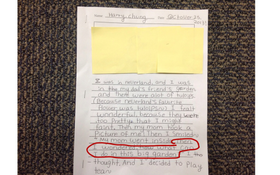 Name Henry Chang Date October 24
It was in neverland. And I was
in the my dad's friend's garden
and There were alot of tulips
Because neverland's favorite
flower was tulips and I felt
wonderful, because they were
too Pretty that I might
faint. Then my mom took a
Picture of me! Then I Smiled
my mom went inside
I wondered how
is in this big garden I
thought, And I decided to Play
tag